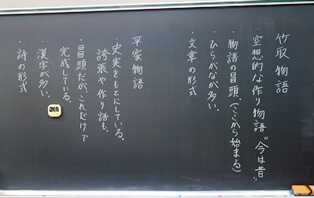 竹取物語
空想的な作り物語"今は昔"
・物語の冒頭。(ここから始まる)
・ひらがなが多い。
・文章の形式
平家物語
・史実をもとにしている。
誇張や作り話も。
・冒頭だが、これだけで
完成している。
・漢字が多い。
・詩の形式